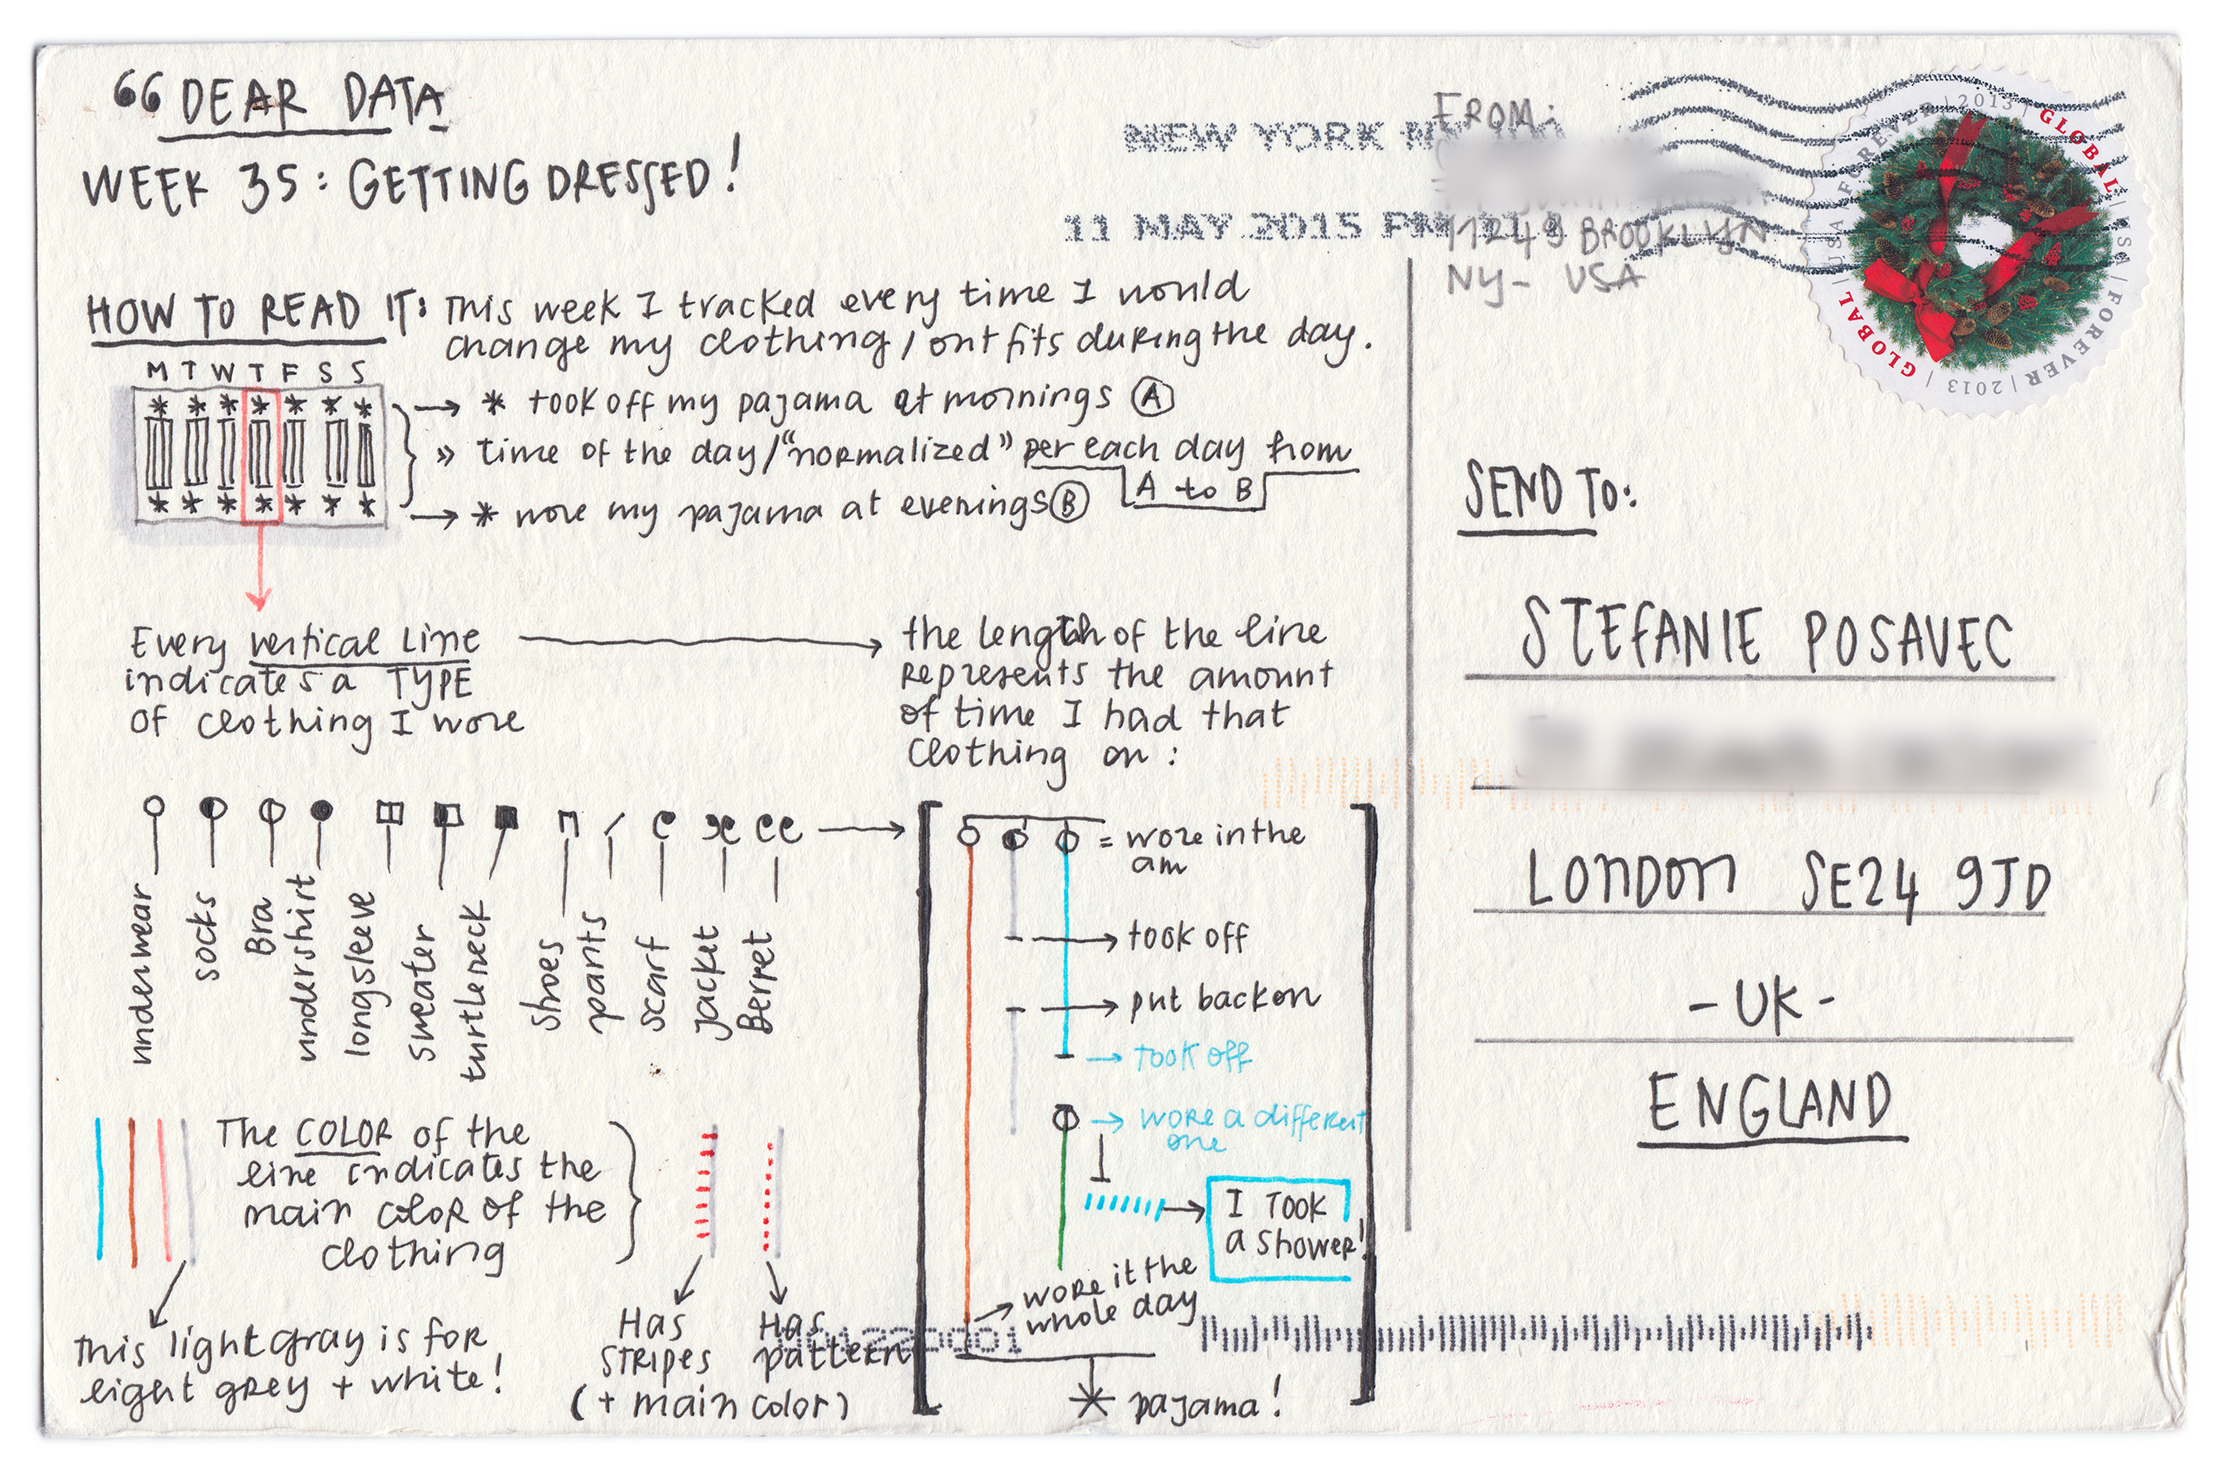 DEAR DATA
WEEK 35: GETTING DRESSED!
HOW TO READ IT: This week I tracked every time I would
change my clothing / outfits during the day.
M T W T F S S
* took off my pajama at mornings A
» time of the day / "normalized" per each day from
A to B
* wore my pajama at evenings B
Every vertical line
indicates a TYPE
of clothing I wore
the length of the line
represents the amount
of time I had that
clothing on:
underwear
socks
Bra
undershirt
longsleeve
sweater
turtleneck
shoes
pants
scarf
jacket
Berret
= wore in the
am
took off
put back on
took off
wore a different
one
I TOOK
a shower!
wore it the
whole day
* pajama!
The COLOR of the
line indicates the
main color of the
clothing
This light gray is for
light grey + white!
Has
STRIPES
Has
pattern
(+ main color)
NEW YORK N
11 MAY 2015 PM
FROM:
11249 BROOKLYN
NY- USA
USA FOREVER | 2013 | GLOBAL | USA FOREVER | 2013 | GLOBAL
SEND TO:
STEFANIE POSAVEC
LONDON SE24 9JD
-UK-
ENGLAND